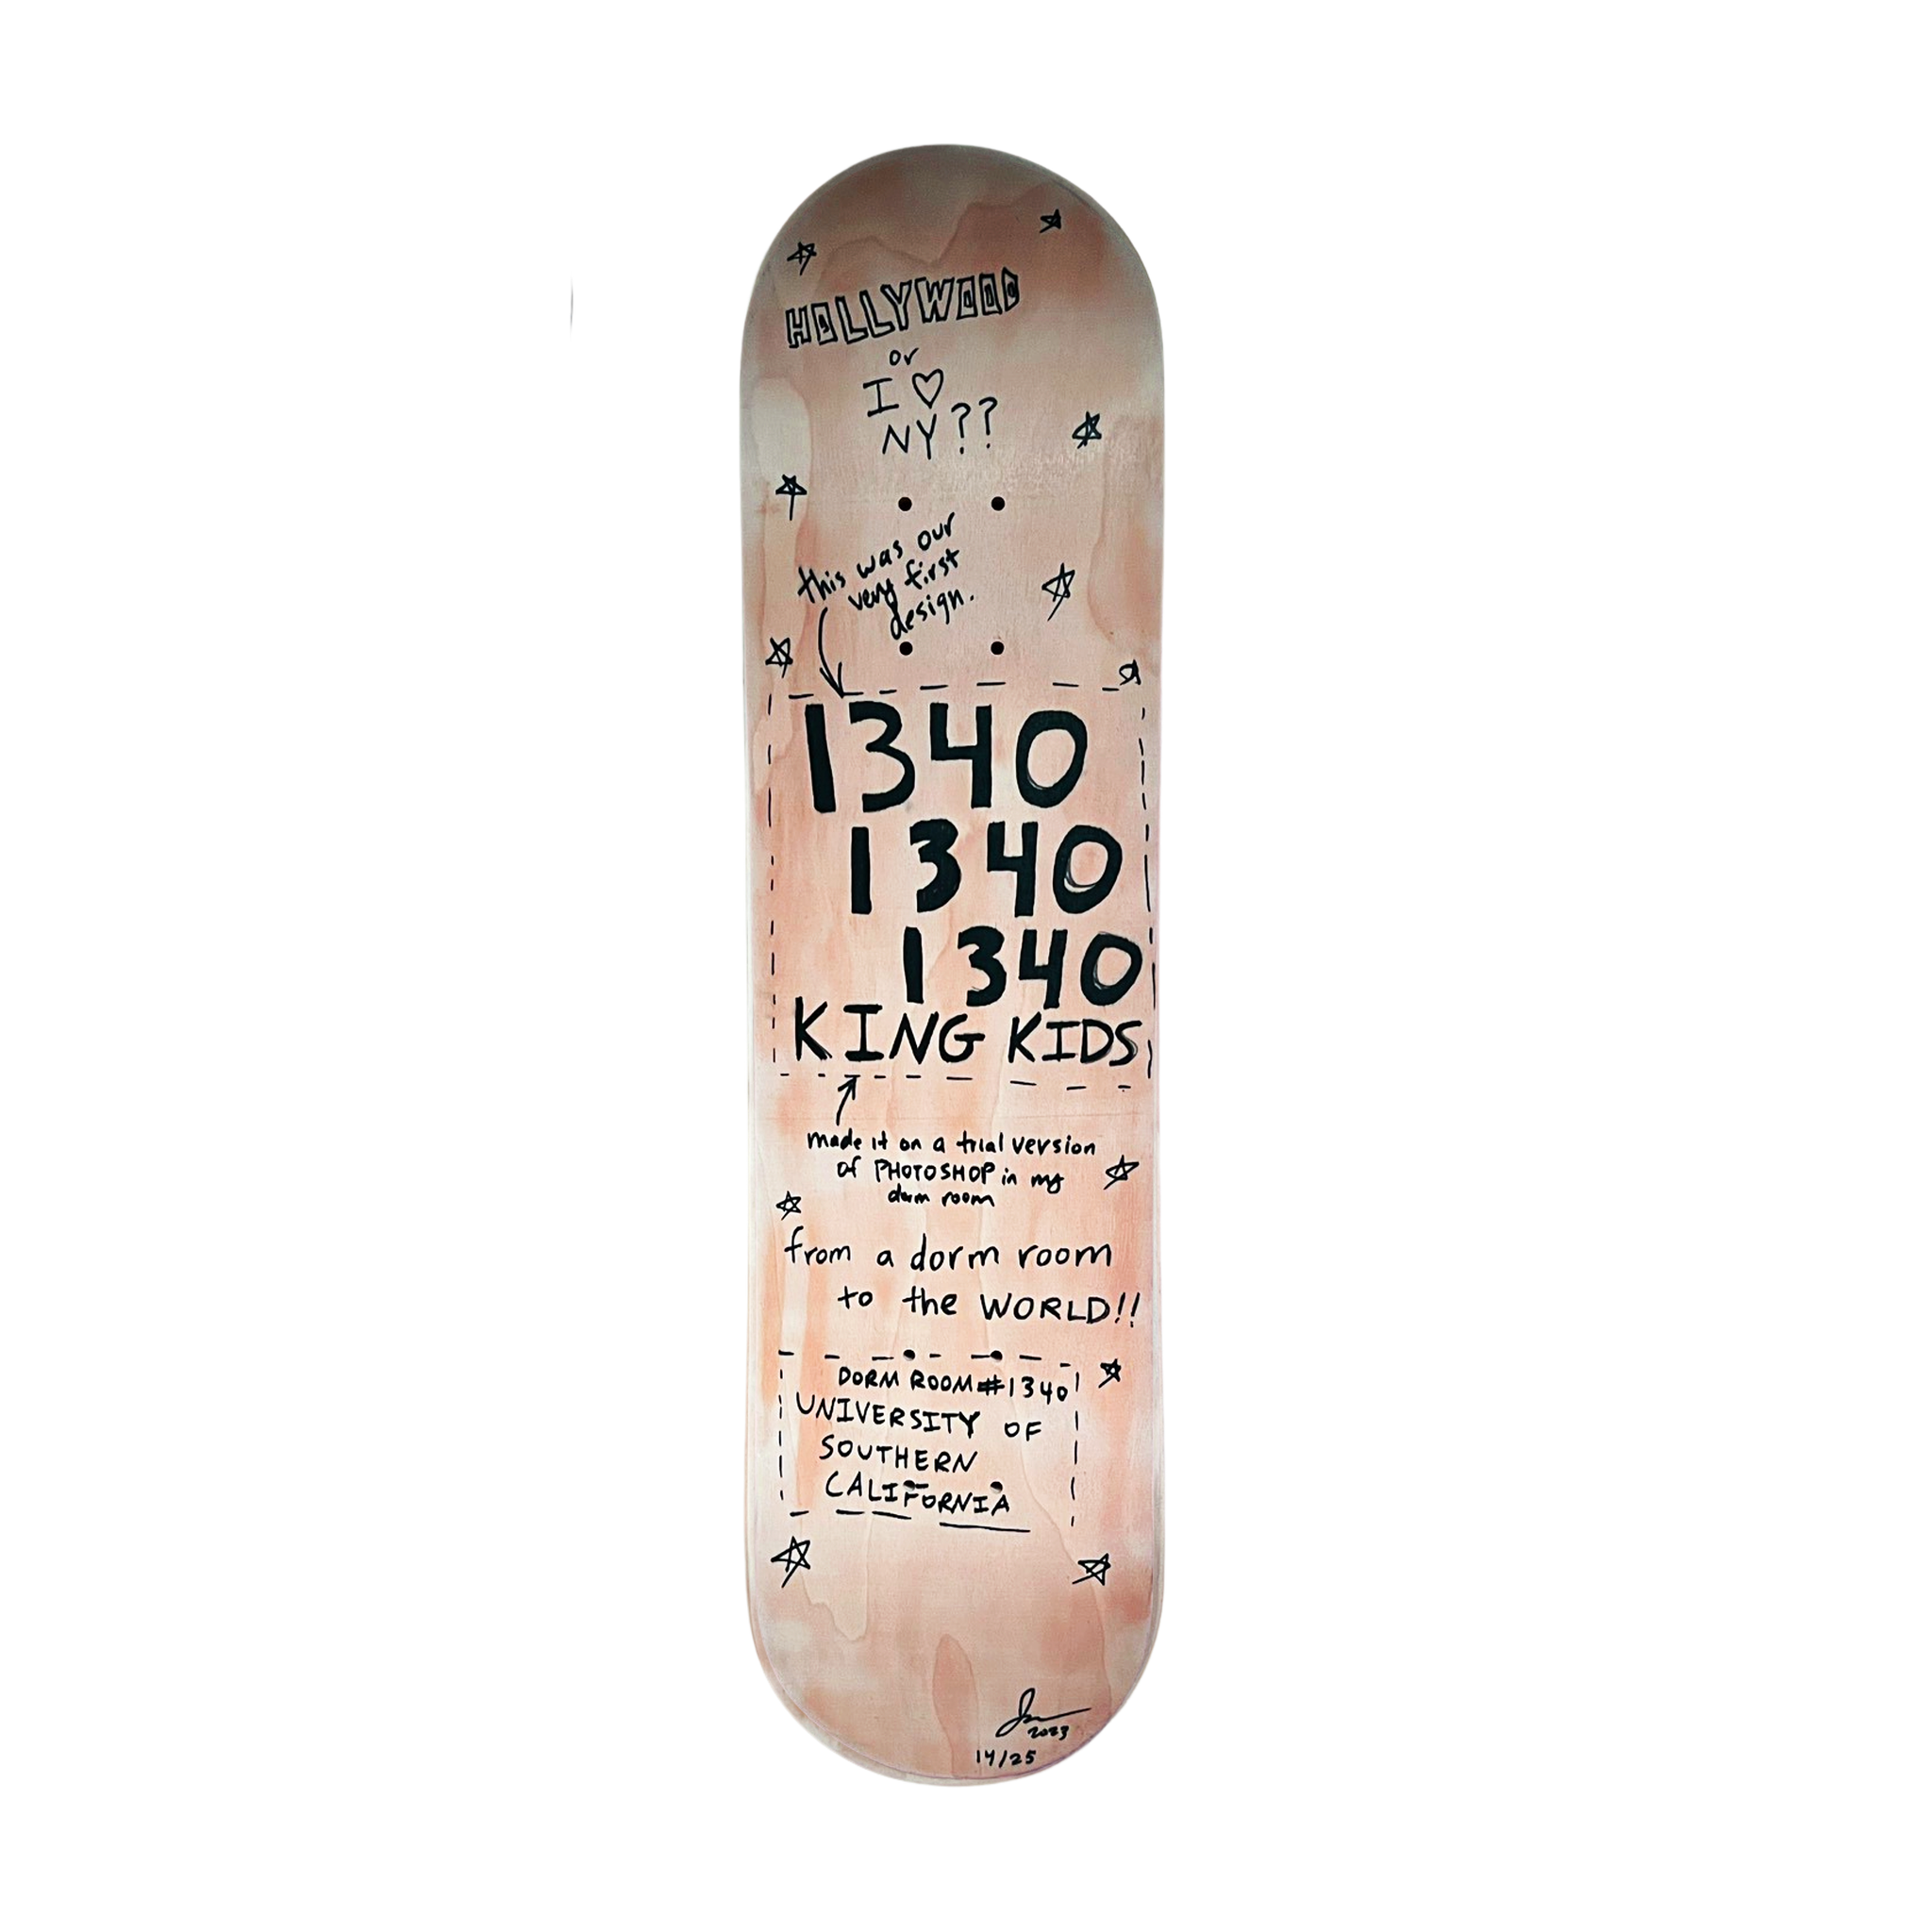 HOLLYWOOD
or
I ♡
NY??
this was our
very first
design.
1340
1340
1340
KING KIDS
made it on a trial version
of PHOTOSHOP in my
dorm room
from a dorm room
to the WORLD!!
DORM ROOM #1340
UNIVERSITY OF
SOUTHERN
CALIFORNIA
2023
14/25